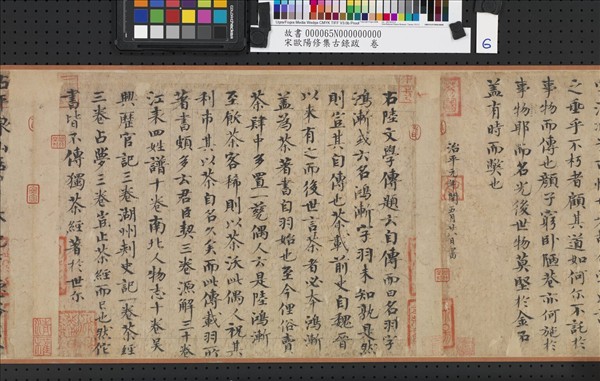 故書 000065N000000000
宋歐陽修集古錄跋 卷
6
之垂乎不朽者顧其道如何尔不託於
事物而傳也顏子窮卧陋巷亦何施於
事物耶而名光後世物莫堅於金石
蓋有時而弊也
治平元年閏五月廿八日書
右陸文學傳題云自傳而曰名羽字
鴻漸或云名鴻漸字羽未知孰是然
則豈其自傳也茶載前史自魏晉
以来有之而後世言茶者必本鴻漸
蓋為茶著書自羽始也至今俚俗賣
茶肆中多置一甆偶人云是陸鴻漸
至飲茶客稀則以茶沃此偶人祝其
利市其以茶自名久矣而此傳載羽所
著書頗多云君臣契三卷源解三十卷
江表四姓譜十卷南北人物志十卷吳
興歷官記三卷湖州刺史記一卷茶經
三卷占夢三卷豈止茶經而已也然佗
書皆不傳獨茶經著於世尔